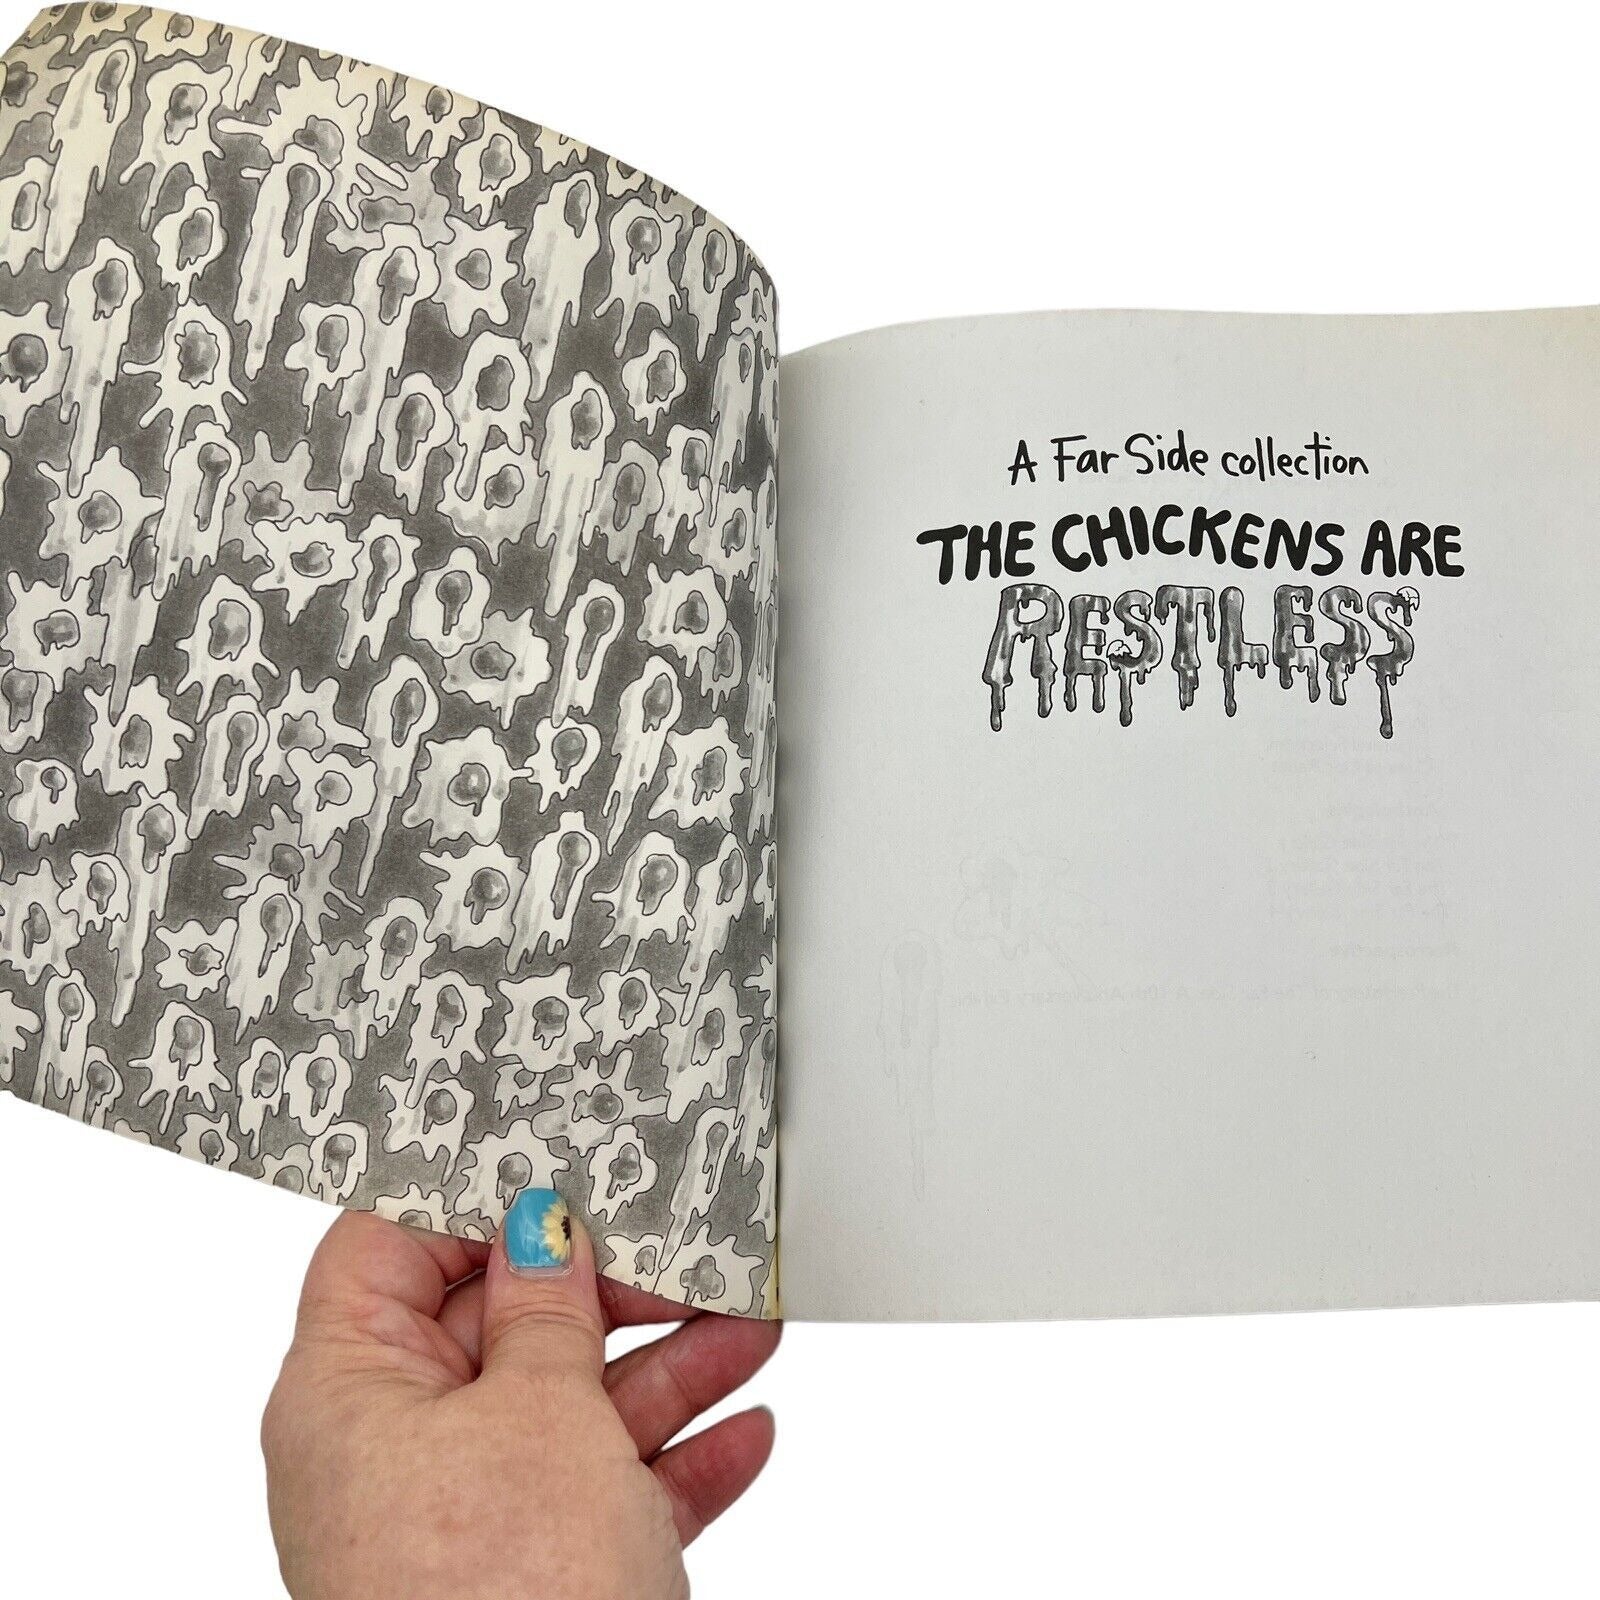 A Far Side collection
THE CHICKENS ARE
RESTLESS